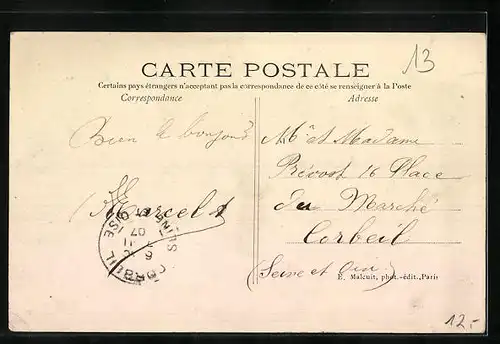 13
CARTE POSTALE
Certains pays étrangers n'acceptent pas la correspondance de ce côté se renseigner à la Poste
Correspondance
Adresse
Bien le bonjour
Marcel
Mr et Madame
Prévost 16 Place
du Marché
Corbeil
(Seine et Oise)
CORBEIL
SEINE-ET-OISE
E. Malcuit, phot.-édit., Paris
12.-